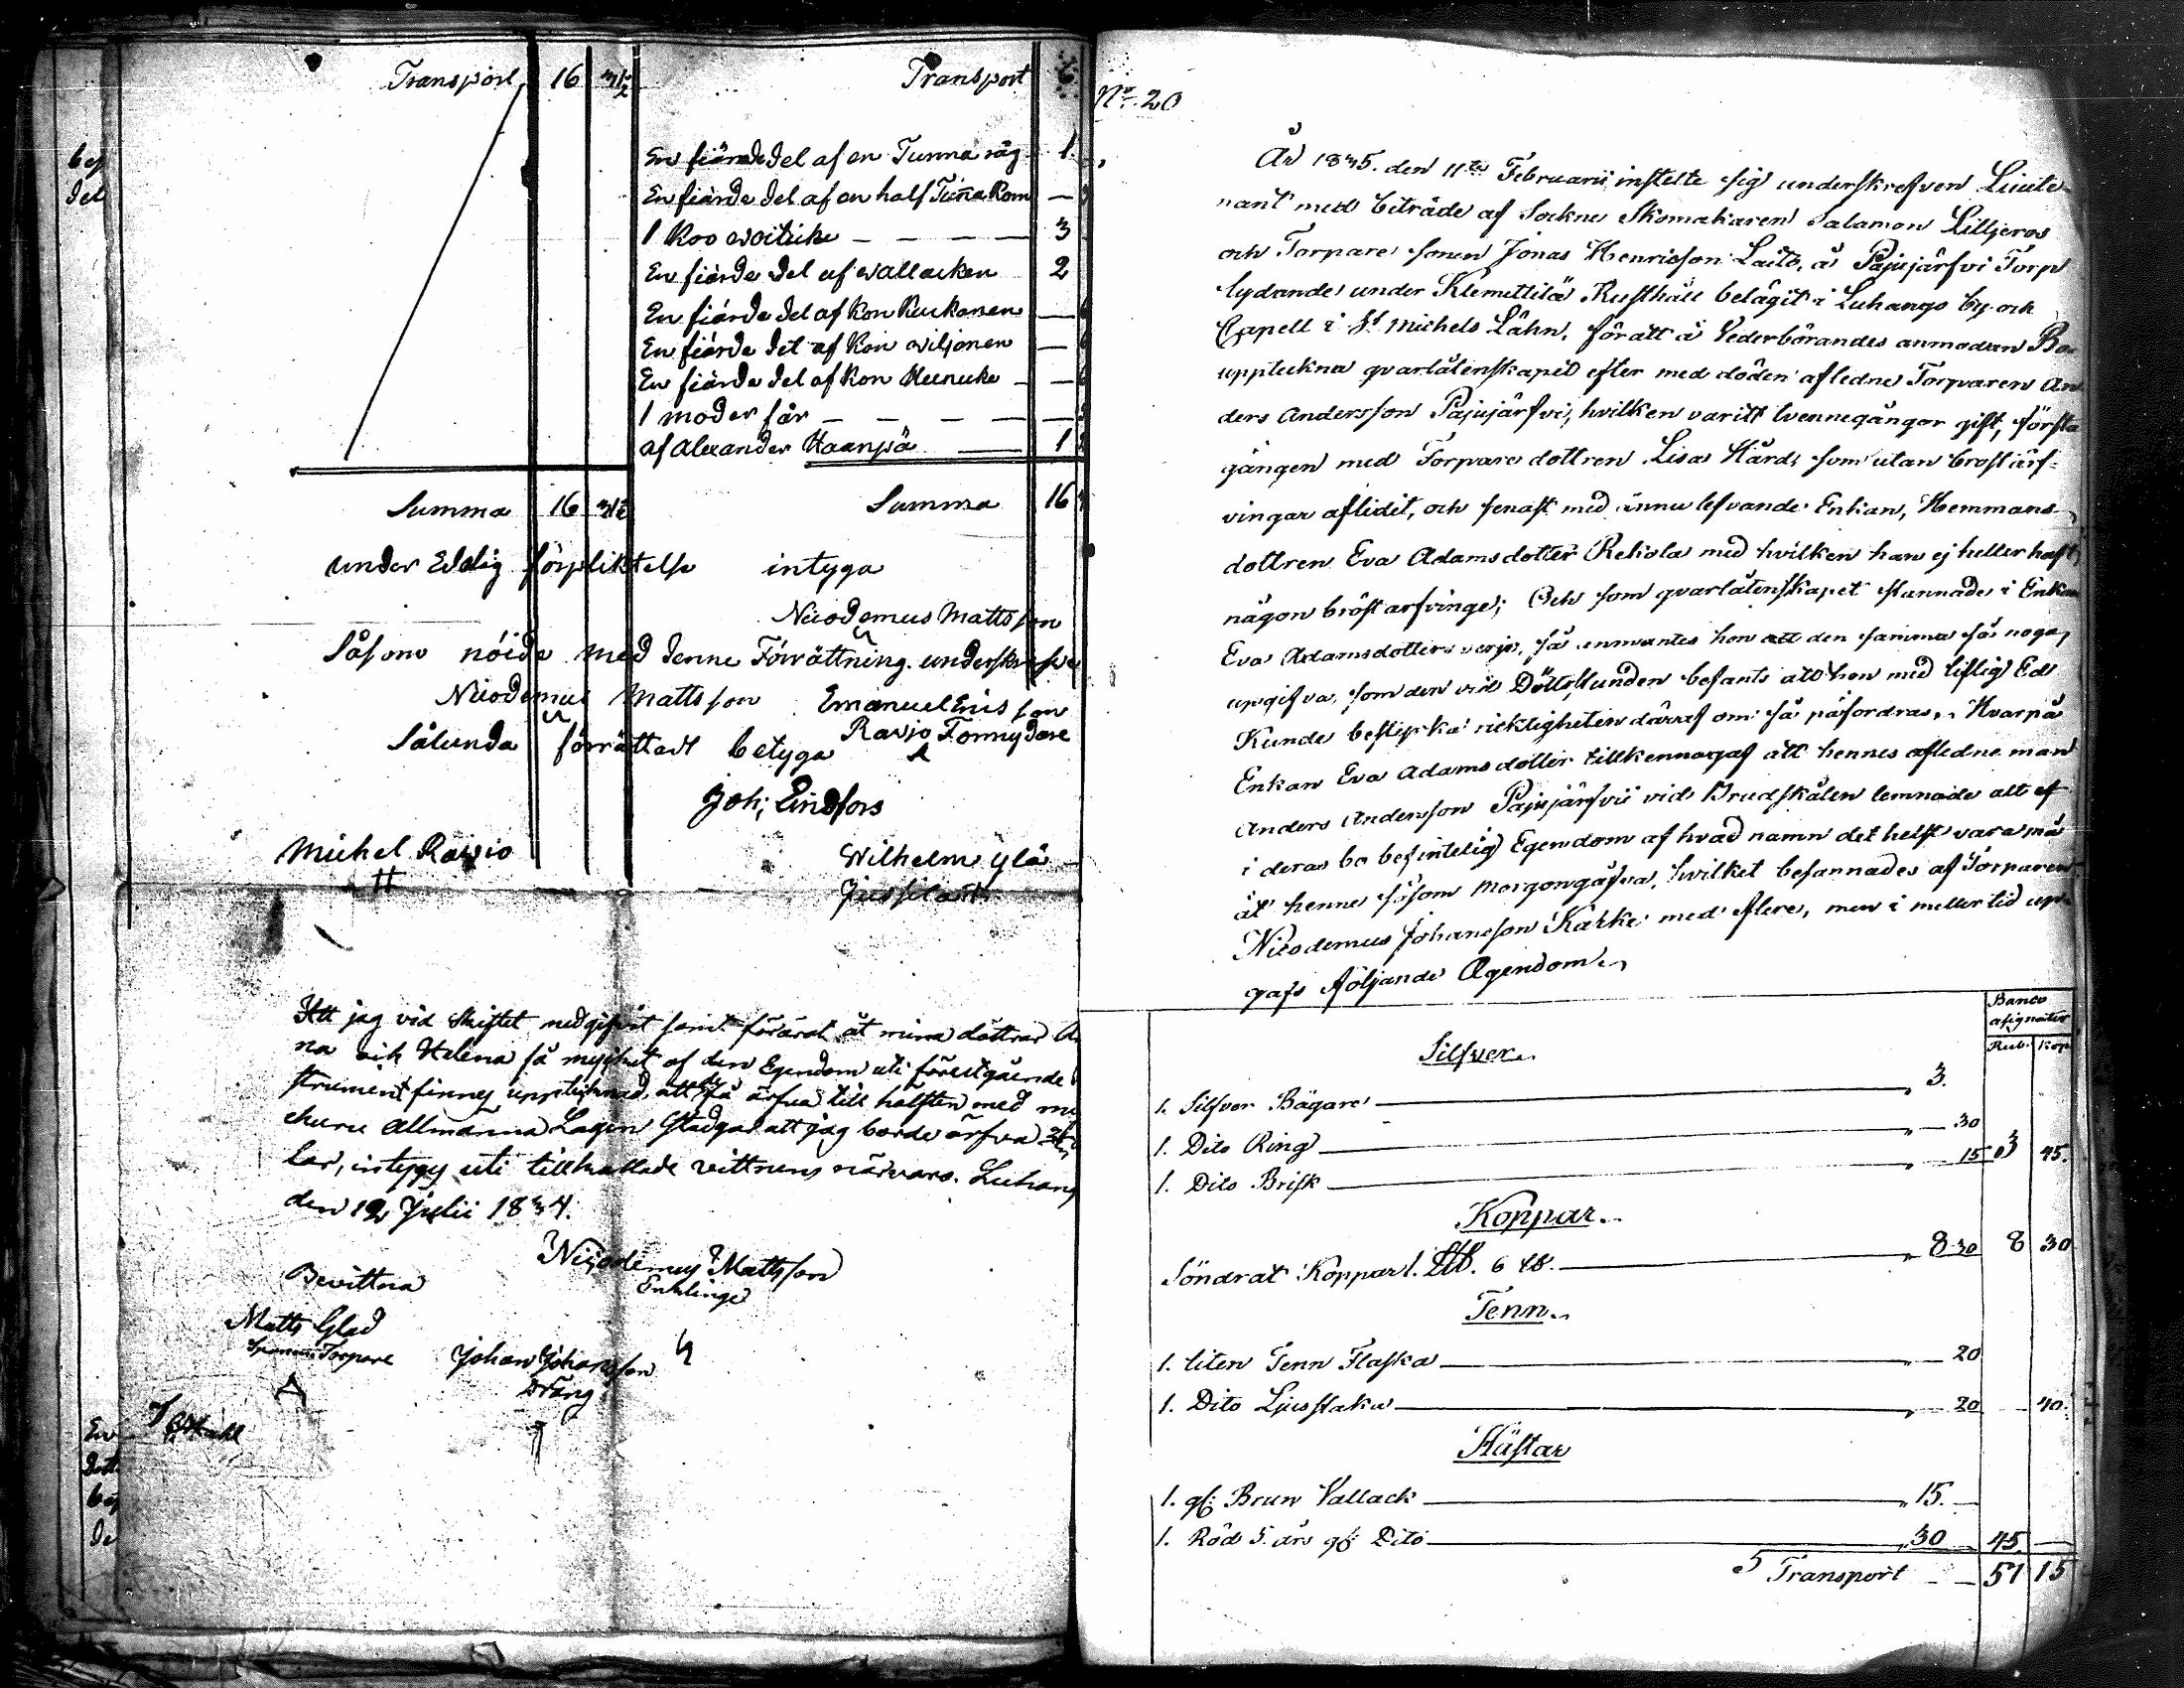 Transport 16 Transport 6
En fiärde del af en Tunna råg 1
En fiärde del af en half Tuña Korn —
1 Koo woitike — — — — 3
En fiärde del af wallacken 2
En fiärde del af Kon Kuukanen —
En fiärde del af Kon wiljonen —
En fiärde del af Kon Heenike — —
1 moder får — — — — —
af Alexander Haanpä — 1
Summa 16 Summa 16
under Edelig förpliktelse intyga
Nicodemus Mattsson
Såsom nöida med denne Förrättning underskrifve
Nicodemus Mattsson Emanuel Enisson
Rawjo Förmydare
Sålunda förrättadt betyga
Joh; Lindfors
Michel Rawio Wilhelm ylä
Jussila
Att jag vid skiftet medgifvit samt förärat åt mina döttrar A
na och Helena så mycket af den Egendom uti förestgående
strument finnes upptecknad, att de få ärfva till hälften med mi
ehuru Allmänna Lagen stadgar att jag borde ärfva
lar, intygas uti tillkallade vittnens närvaro. Luhang
den 12 Julii 1834.
Nicodemus Mattsson
Enklinge
Bevittna
Matts Glad
Torpare
Johan Johansson
Dräng
Nr. 20
År 1835. den 11te Februarii instelte sig underskrefven Lieute
nant med biträde af Sockne Skomakaren Salamon Lilljeros
och Torpare sonen Jonas Henricsson Laito, å Pajujärfvi Torp
lydande under Klemettilä Rusthåll belägit i Luhango by och
Capell i St Michels Lähn, för att å Vederbörandes anmodan Bo
uppteckna qvarlåtenskapet efter med döden afledne Torparen An
ders Andersson Pajujärfvi, hvilken varitt tvennegångor gift, första
gången med Torpare dottren Lisa Hård, som utan bröst ärf-
vingar aflidit, och senast med ännu lefvande Enkan, Hemmans
dottren Eva Adamsdotter Rekola med hvilken han ej heller haft
någon bröst arfvinge; Och som qvarlåtenskapet stannade i Enkan
Eva Adamsdotters verjo, så anvantes hon att den samma så noga
upgifva, som den vid Dödsstunden befants att hon med liflig Ed
Kunde bestyrka ricktigheten däraf om så påfordras. Hvarpå
Enkan Eva Adamsdotter tillkennagaf att hennes afledne man
Anders Andersson Pajujärfvi vid Brudskålen lemnade alt ef
i deras bo befintelig Egendom af hvad namn det helst vara må
åt henne såsom Morgongåfva, hvilket besannades af Torparen
Nicodemus Johansson Kakko med flere, men i mellertid up-
gafs följande Ägendom.
Banco
asignater
Rub. Kop
Silfver.
1. Silfver Bägare — 3.
1. Dito Ring — 30
1. Dito Brisk — 15 3 45.
Koppar.
Söndrat Koppar 1. LU. 6 U. — 8 30 8 30
Tenn.
1. liten Tenn Flaska — 20
1. Dito Ljusstaka — 20 40.
Hästar
1. gl: Brun Vallack — 15. —
1. Röd 5. års gl: Dito — 30 45. —
Transport — 57 15